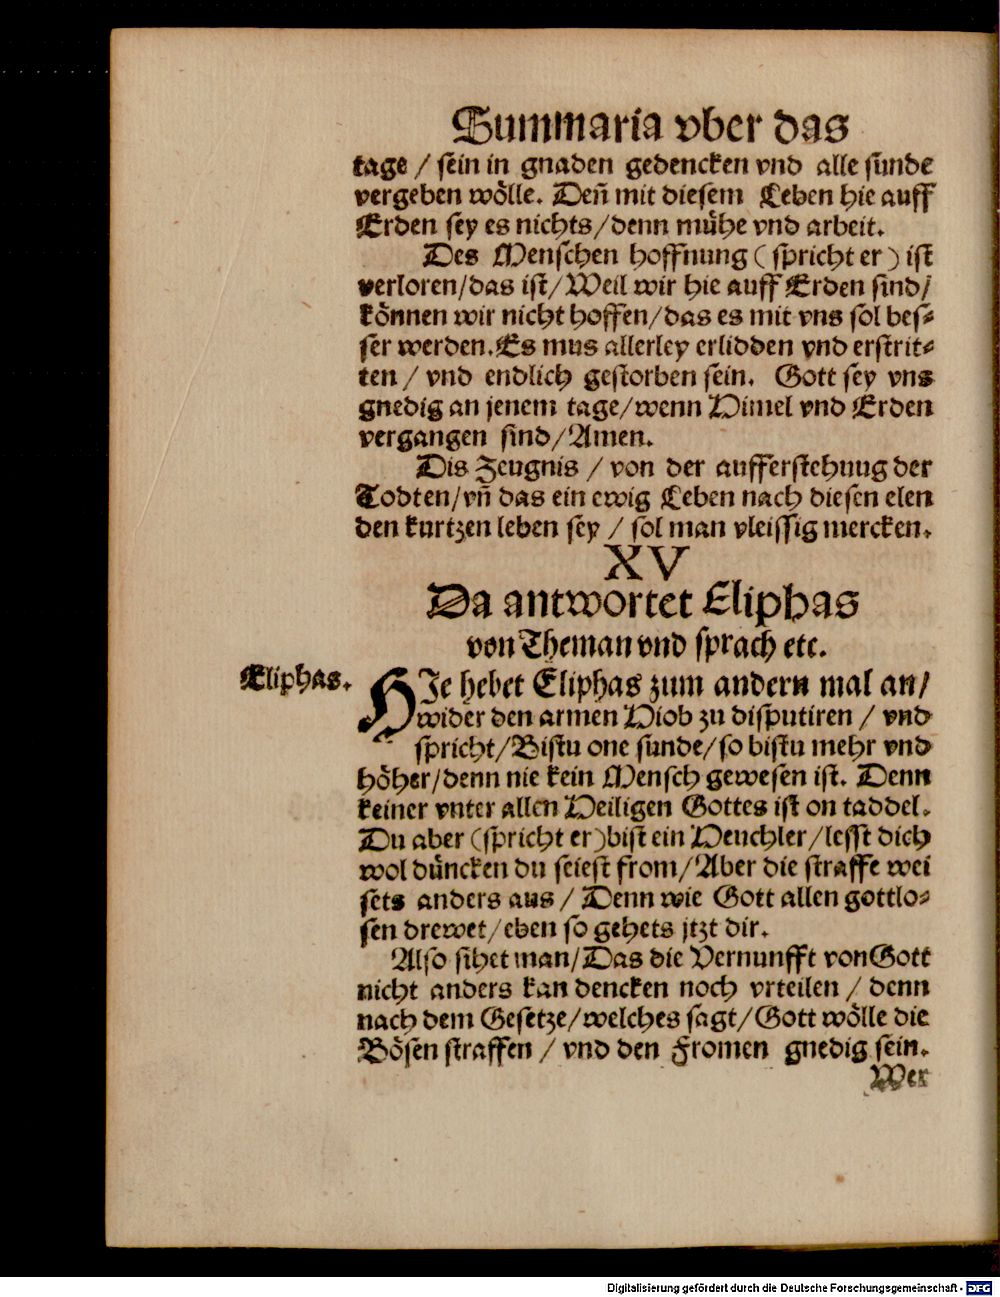 Summaria vber das
tage / sein in gnaden gedencken vnd alle sünde
vergeben wölle. Deñ mit diesem Leben hie auff
Erden sey es nichts/denn mühe vnd arbeit.
Des Menschen hoffnung (spricht er) ist
verloren/das ist/Weil wir hie auff Erden sind/
können wir nicht hoffen/das es mit vns sol bes-
ser werden.Es mus allerley erlidden vnd erstrit-
ten / vnd endlich gestorben sein. Gott sey vns
gnedig an jenem tage/wenn Himel vnd Erden
vergangen sind/Amen.
Dis Zeugnis / von der aufferstehung der
Todten/vñ das ein ewig Leben nach diesen elen
den kurtzen leben sey / sol man vleissig mercken.
XV
Da antwortet Eliphas
von Theman vnd sprach etc.
Eliphas.
HJe hebet Eliphas zum andern mal an/
wider den armen Hiob zu disputiren / vnd
spricht/Bistu one sünde/so bistu mehr vnd
höher/denn nie kein Mensch gewesen ist. Denn
keiner vnter allen Heiligen Gottes ist on taddel.
Du aber (spricht er)bist ein Heuchler/lesst dich
wol düncken du seiest from/Aber die straffe wei
sets anders aus / Denn wie Gott allen gottlo-
sen drewet/eben so gehets jtzt dir.
Also sihet man/Das die Vernunfft von Gott
nicht anders kan dencken noch vrteilen / denn
nach dem Gesetze/welches sagt/Gott wölle die
Bösen straffen / vnd den Fromen gnedig sein.
Wer
Digitalisierung gefördert durch die Deutsche Forschungsgemeinschaft - DFG